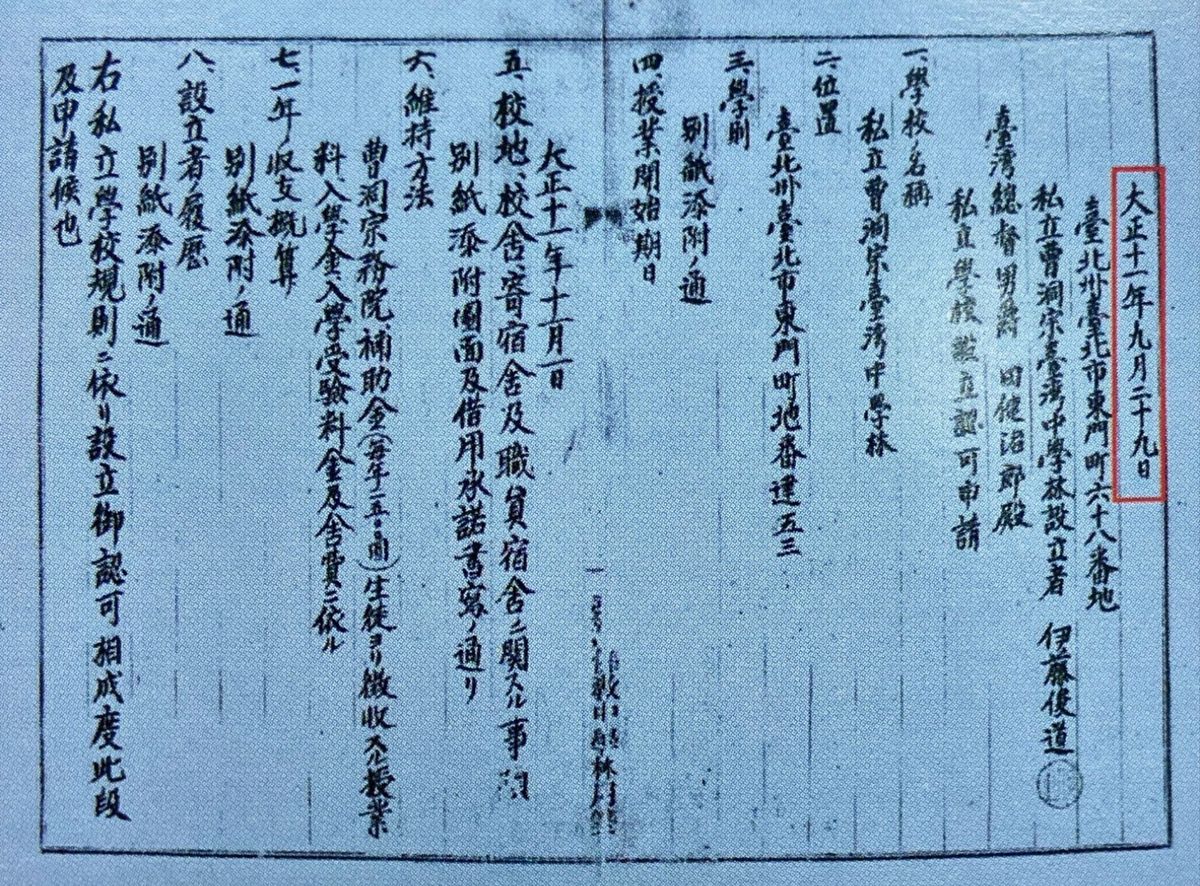 大正十一年九月二十九日
臺北州臺北市東門町六十八番地
私立曹洞宗臺湾中學林設立者 伊藤俊道
臺湾總督男爵 田健治郎殿
私立學校設立認可申請
一、學校ノ名稱
私立曹洞宗臺湾中學林
二、位置
臺北州臺北市東門町地番建五三
三、學則
別紙添附ノ通
四、授業開始期日
大正十一年十一月一日
五、校地、校舎、寄宿舎及職員宿舎ニ関スル事項
別紙添附圖面及借用承諾書寫ノ通リ
六、維持方法
曹洞宗務院、補助金(毎年一五〇〇圓)生徒ヨリ徴收スル授業
料、入學金、入學受驗料金及舎費ニ依ル
七、一年ノ收支概算
別紙添附ノ通
八、設立者ノ履歴
別紙添附ノ通
右私立學校規則ニ依リ設立御認可相成度此段
及申請候也